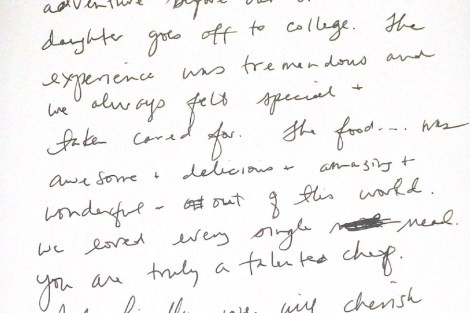 adventure before our
daughter goes off to college. The
experience was tremendous and
we always felt special +
taken cared for. The food... was
awesome + delicious + amazing +
wonderful - out of this world.
we loved every single meal.
You are truly a talented chef.
we will cherish